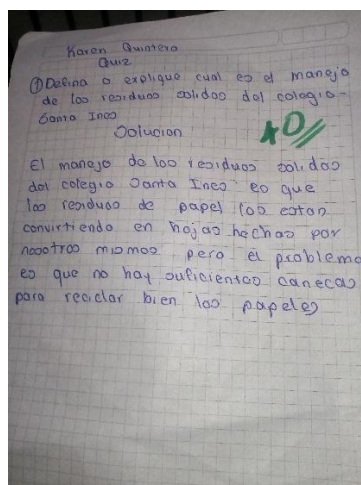 Karen Quintero
Quiz
① Defina o explique cual es el manejo
de los residuos solidos del colegio -
Santa Ines
Solucion
El manejo de los residuos solidos
del colegio Santa Ines es que
los residuos de papel los estan
convirtiendo en hojas hechas por
nosotros mismos pero el problema
es que no hay suficientes canecas
para reciclar bien los papeles